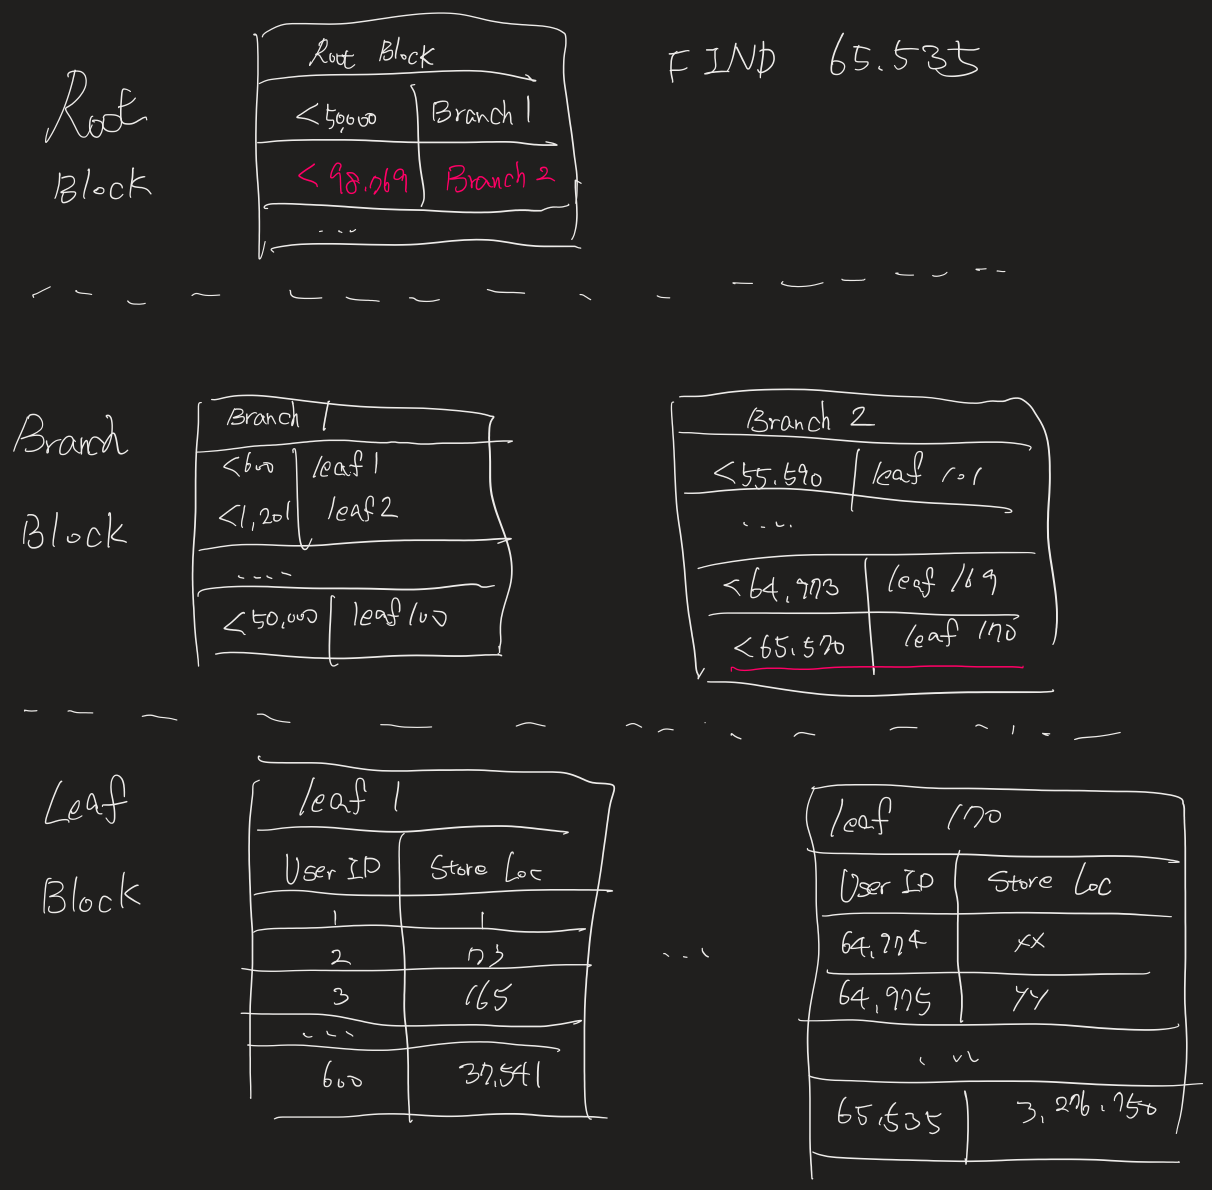 FIND 65.535
Root
Block
Root Block
<50,000 Branch 1
<98.769 Branch 2
...
Branch
Block
Branch 1
<600 leaf 1
<1,201 leaf 2
....
<50,000 leaf 100
Branch 2
<55.590 leaf 101
....
<64,973 leaf 169
<65.570 leaf 170
Leaf
Block
leaf 1
User ID Store Loc
1 1
2 73
3 165
...
600 37,541
...
leaf 170
User ID Store Loc
64,974 xx
64,975 yy
...
65,535 3,276,750